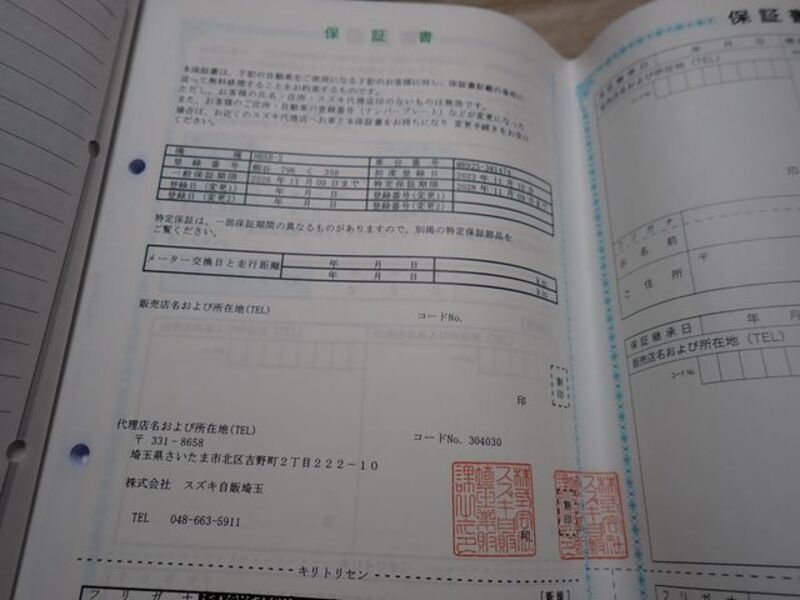 保証書
本保証書は、下記の自動車をご使用になる下記のお客様に対し、保証書記載の条件に
従って無料修理することをお約束するものです。
ただし、お客様の氏名・住所・スズキ代理店印のないものは無効です。
また、お客様のご住所・自動車の登録番号(ナンバープレート)などが変更になった
場合は、お近くのスズキ代理店へお車と本保証書をお持ちになり 変更手続きをお受け
ください。
機種 車台番号
登録番号 熊谷 796 く 358 初度登録日 2023 年 11 月 10 日
一般保証期限 2026 年 11 月 09 日まで 特定保証期限 2028 年 11 月 09 日まで
登録日(変更1) 年 月 日 登録番号(変更1)
登録日(変更2) 年 月 日 登録番号(変更2)
特定保証は、一部保証期間の異なるものがありますので、別掲の特定保証部品を
ご覧ください。
メーター交換日と走行距離 年 月 日 km
年 月 日 km
販売店名および所在地(TEL) コードNo.
割印
印
代理店名および所在地(TEL) コードNo. 304030
〒 331-8658
埼玉県さいたま市北区吉野町2丁目222-10
株式会社 スズキ自販埼玉
TEL 048-663-5911
印
割印
キリトリセン
フリガナ
保証書
保証継承日 年 月 日
販売店名および所在地(TEL)
コードNo.
印
フリガナ
お名前
ご住所 〒
保証継承日 年 月
販売店名および所在地(TEL)
コードNo.
フリガナ